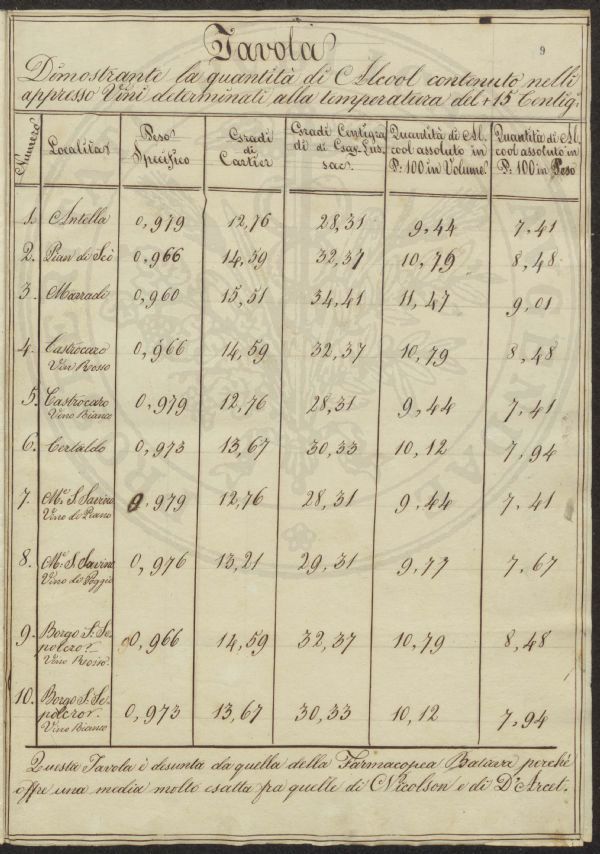 9
Tavola
Dimostrante la quantità di Alcool contenuto nelli
appresso Vini determinati alla temperatura del +15 Centig.
Numero Località Peso Specifico Gradi di Cartier Gradi Centigradi di Gay-Lussac. Quantità di Alcool assoluto in P: 100 in Volume. Quantità di Alcool assoluto in P: 100 in Peso
1. Antella 0,979 12,76 28,31 9,44 7,41
2. Pian di Scò 0,966 14,59 32,37 10,79 8,48
3. Marradi 0,960 15,51 34,41 11,47 9,01
4. Castrocaro 0,966 14,59 32,37 10,79 8,48
Vin Rosso
5. Castrocaro 0,979 12,76 28,31 9,44 7,41
Vino Bianco
6. Certaldo 0,973 13,67 30,33 10,12 7,94
7. Me. S. Savino 0,979 12,76 28,31 9,44 7,41
Vino di Piano
8. Me. S. Savino 0,976 13,21 29,31 9,77 7,67
Vino di Poggio
9. Borgo S. Se-
polcro 0,966 14,59 32,37 10,79 8,48
Vino Rosso.
10. Borgo S. Se-
polcro 0,973 13,67 30,33 10,12 7,94
Vino Bianco
Questa Tavola è desunta da quella della Farmacopea Batava perchè
offre una media molto esatta fra quelle di Nicolson e di D'Arcet.